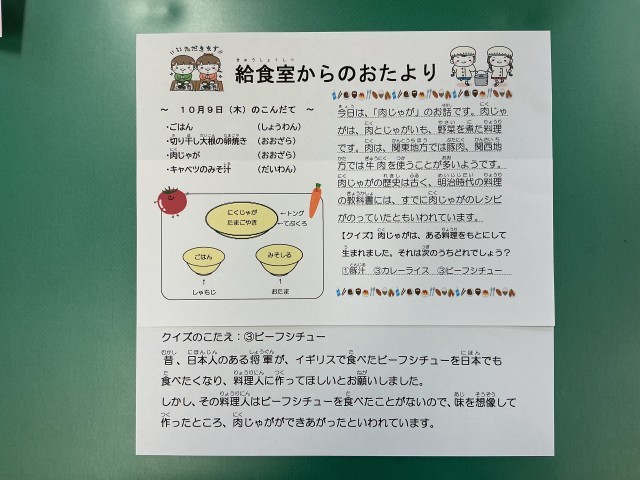 いただきます!!
給食室からのおたより
～ 10月9日(木)のこんだて ～
・ごはん (しょうわん)
・切り干し大根の卵焼き (おおざら)
・肉じゃが (おおざら)
・キャベツのみそ汁 (だいわん)
にくじゃが
たまごやき
←トング
←てぶくろ
ごはん
みそしる
↑
しゃもじ
↑
おたま
今日は、「肉じゃが」のお話です。肉じゃ
がは、肉とじゃがいも、野菜を煮た料理
です。肉は、関東地方では豚肉、関西地
方では牛肉を使うことが多いようです。
肉じゃがの歴史は古く、明治時代の料理
の教科書には、すでに肉じゃがのレシピ
がのっていたともいわれています。
【クイズ】肉じゃがは、ある料理をもとにして
生まれました。それは次のうちどれでしょう？
①豚汁 ③カレーライス ③ビーフシチュー
クイズのこたえ：③ビーフシチュー
昔、日本人のある将軍が、イギリスで食べたビーフシチューを日本でも
食べたくなり、料理人に作ってほしいとお願いしました。
しかし、その料理人はビーフシチューを食べたことがないので、味を想像して
作ったところ、肉じゃがができあがったといわれています。